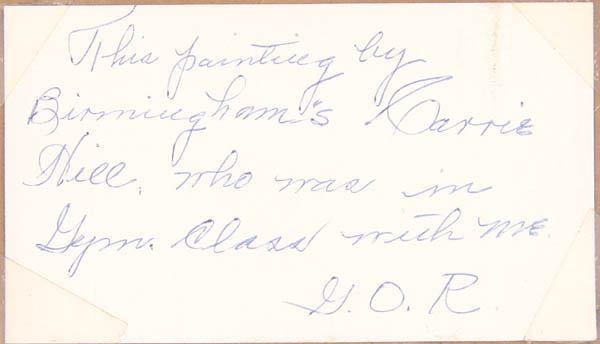 This painting by
Birmingham's Carrie
Hill, who was in
Gym. Class with me.
G. O. R.